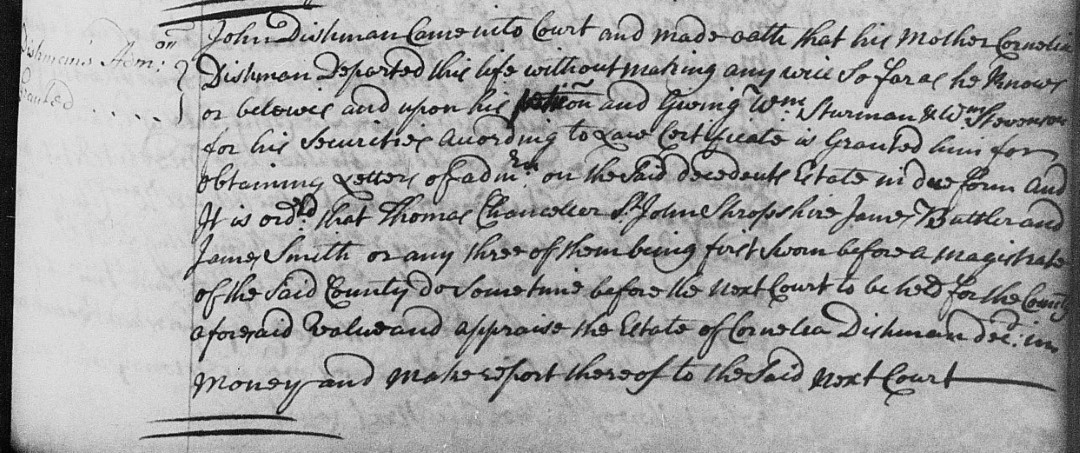 Dishman's Adm:on
Granted . . . .
John Dishman Came into Court and made oath that his Mother Cornelia
Dishman Departed this life without making any will So far as he Knows
or beleivs and upon his petition and Giving Wm Sturman & Wm Stevenson
for his Securities According to Law Certificate is Granted him for
obtaining Letters of adm:on on the Said decedents Estate in due form And
It is ord:d that Thomas Chanceler Sr. John Shropshire James Buttler and
James Smith or any three of them being first Sworn before a Magistrate
of the Said County do Sometime before the next Court to be held for the County
aforesaid Value and appraise the Estate of Cornelia Dishman dec:d in
Money and Make report thereof to the Said next Court